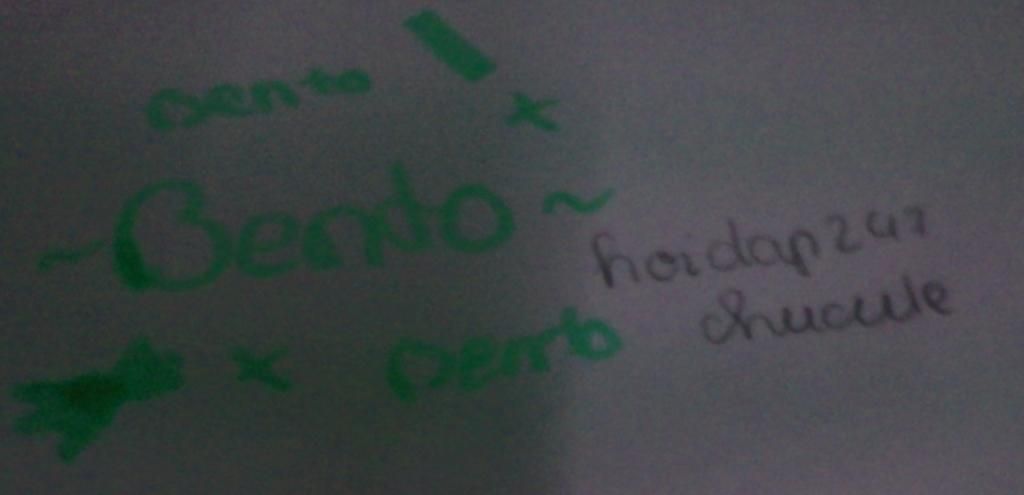 Bento
~Bento~
hoidap247
chucule
Bento